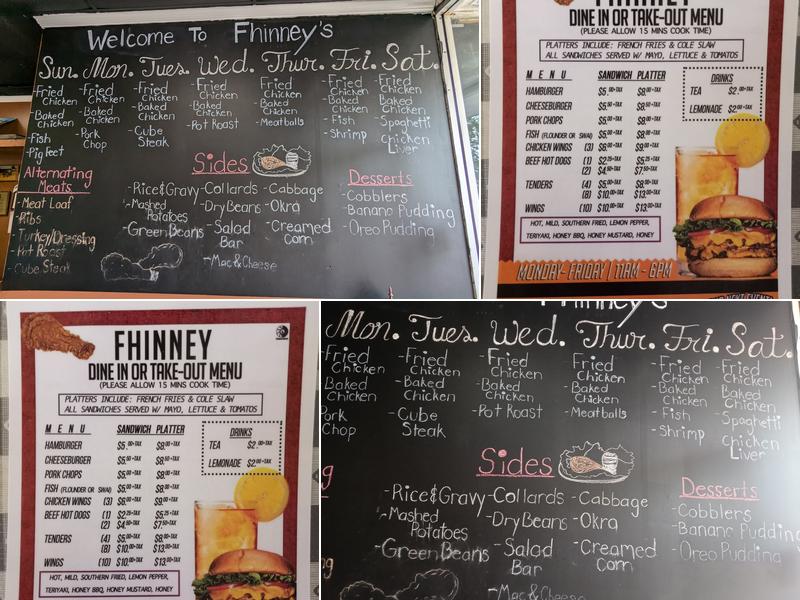 Welcome To Fhinney's
Sun. Mon. Tues. Wed. Thur. Fri. Sat.
Fried Chicken
Baked Chicken
-Fish
-Pig feet
-Fried Chicken
-Baked Chicken
-Pork Chop
-Fried Chicken
-Baked Chicken
-Cube Steak
-Fried Chicken
-Baked Chicken
-Pot Roast
-Fried Chicken
-Baked Chicken
-Meatballs
-Fried Chicken
-Baked Chicken
-Fish
-Shrimp
-Fried Chicken
Baked Chicken
-Spaghetti
-Chicken Liver
Alternating
Meats
-Meat Loaf
-Ribs
-Turkey/Dressing
-Pot Roast
-Cube Steak
Sides
-Rice&Gravy
-Mashed
Potatoes
-Green Beans
-Collards
-Dry Beans
-Salad
Bar
-Mac&Cheese
-Cabbage
-Okra
-Creamed
Corn
Desserts
-Cobblers
-Banana Pudding
-Oreo Pudding
FHINNEY
DINE IN OR TAKE-OUT MENU
(PLEASE ALLOW 15 MINS COOK TIME)
PLATTERS INCLUDE: FRENCH FRIES & COLE SLAW
ALL SANDWICHES SERVED W/ MAYO, LETTUCE & TOMATOS
MENU SANDWICH PLATTER
HAMBURGER $5.00+TAX $8.00+TAX
CHEESEBURGER $5.50+TAX $8.50+TAX
PORK CHOPS $5.00+TAX $8.00+TAX
FISH (FLOUNDER OR SWAI) $5.00+TAX $8.00+TAX
CHICKEN WINGS (3) $6.00+TAX $9.00+TAX
BEEF HOT DOGS (1) $2.25+TAX $5.25+TAX
(2) $4.50+TAX $7.50+TAX
TENDERS (4) $5.00+TAX $8.00+TAX
(8) $10.00+TAX $13.00+TAX
WINGS (10) $10.00+TAX $13.00+TAX
DRINKS
TEA $2.00+TAX
LEMONADE $2.00+TAX
HOT, MILD, SOUTHERN FRIED, LEMON PEPPER,
TERIYAKI, HONEY BBQ, HONEY MUSTARD, HONEY
MONDAY-FRIDAY | 11AM - 6PM
FHINNEY
DINE IN OR TAKE-OUT MENU
(PLEASE ALLOW 15 MINS COOK TIME)
PLATTERS INCLUDE: FRENCH FRIES & COLE SLAW
ALL SANDWICHES SERVED W/ MAYO, LETTUCE & TOMATOS
MENU SANDWICH PLATTER
HAMBURGER $5.00+TAX $8.00+TAX
CHEESEBURGER $5.50+TAX $8.50+TAX
PORK CHOPS $5.00+TAX $8.00+TAX
FISH (FLOUNDER OR SWAI) $5.00+TAX $8.00+TAX
CHICKEN WINGS (3) $6.00+TAX $9.00+TAX
BEEF HOT DOGS (1) $2.25+TAX $5.25+TAX
(2) $4.50+TAX $7.50+TAX
TENDERS (4) $5.00+TAX $8.00+TAX
(8) $10.00+TAX $13.00+TAX
WINGS (10) $10.00+TAX $13.00+TAX
DRINKS
TEA $2.00+TAX
LEMONADE $2.00+TAX
HOT, MILD, SOUTHERN FRIED, LEMON PEPPER,
TERIYAKI, HONEY BBQ, HONEY MUSTARD, HONEY
Fhinney's
Mon. Tues. Wed. Thur. Fri. Sat.
Fried
Chicken
Baked
Chicken
Pork
Chop
-Fried
Chicken
-Baked
Chicken
-Cube
Steak
-Fried
Chicken
-Baked
Chicken
-Pot Roast
Fried
Chicken
-Baked
Chicken
-Meatballs
-Fried
Chicken
-Baked
Chicken
-Fish
-Shrimp
-Fried
Chicken
Baked
Chicken
-Spaghetti
-Chicken
Liver
Sides
-Rice&Gravy
-Mashed
Potatoes
-Green Beans
-Collards
-Dry Beans
-Salad
Bar
-Mac&Cheese
-Cabbage
-Okra
-Creamed
Corn
Desserts
-Cobblers
-Banana Pudding
-Oreo Pudding